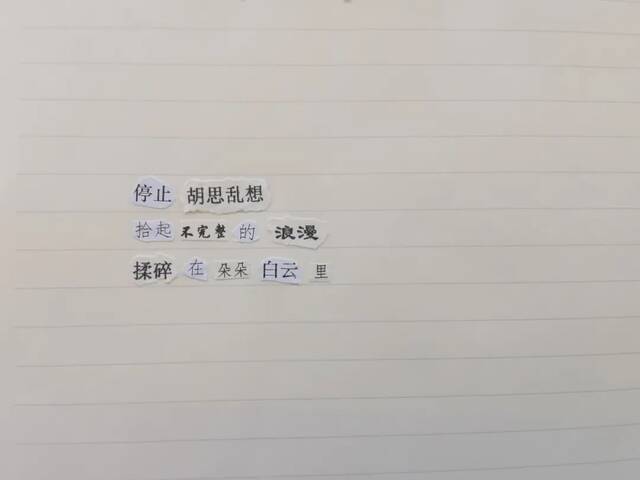 停止 胡思乱想
拾起 不完整 的 浪漫
揉碎 在 朵朵 白云 里